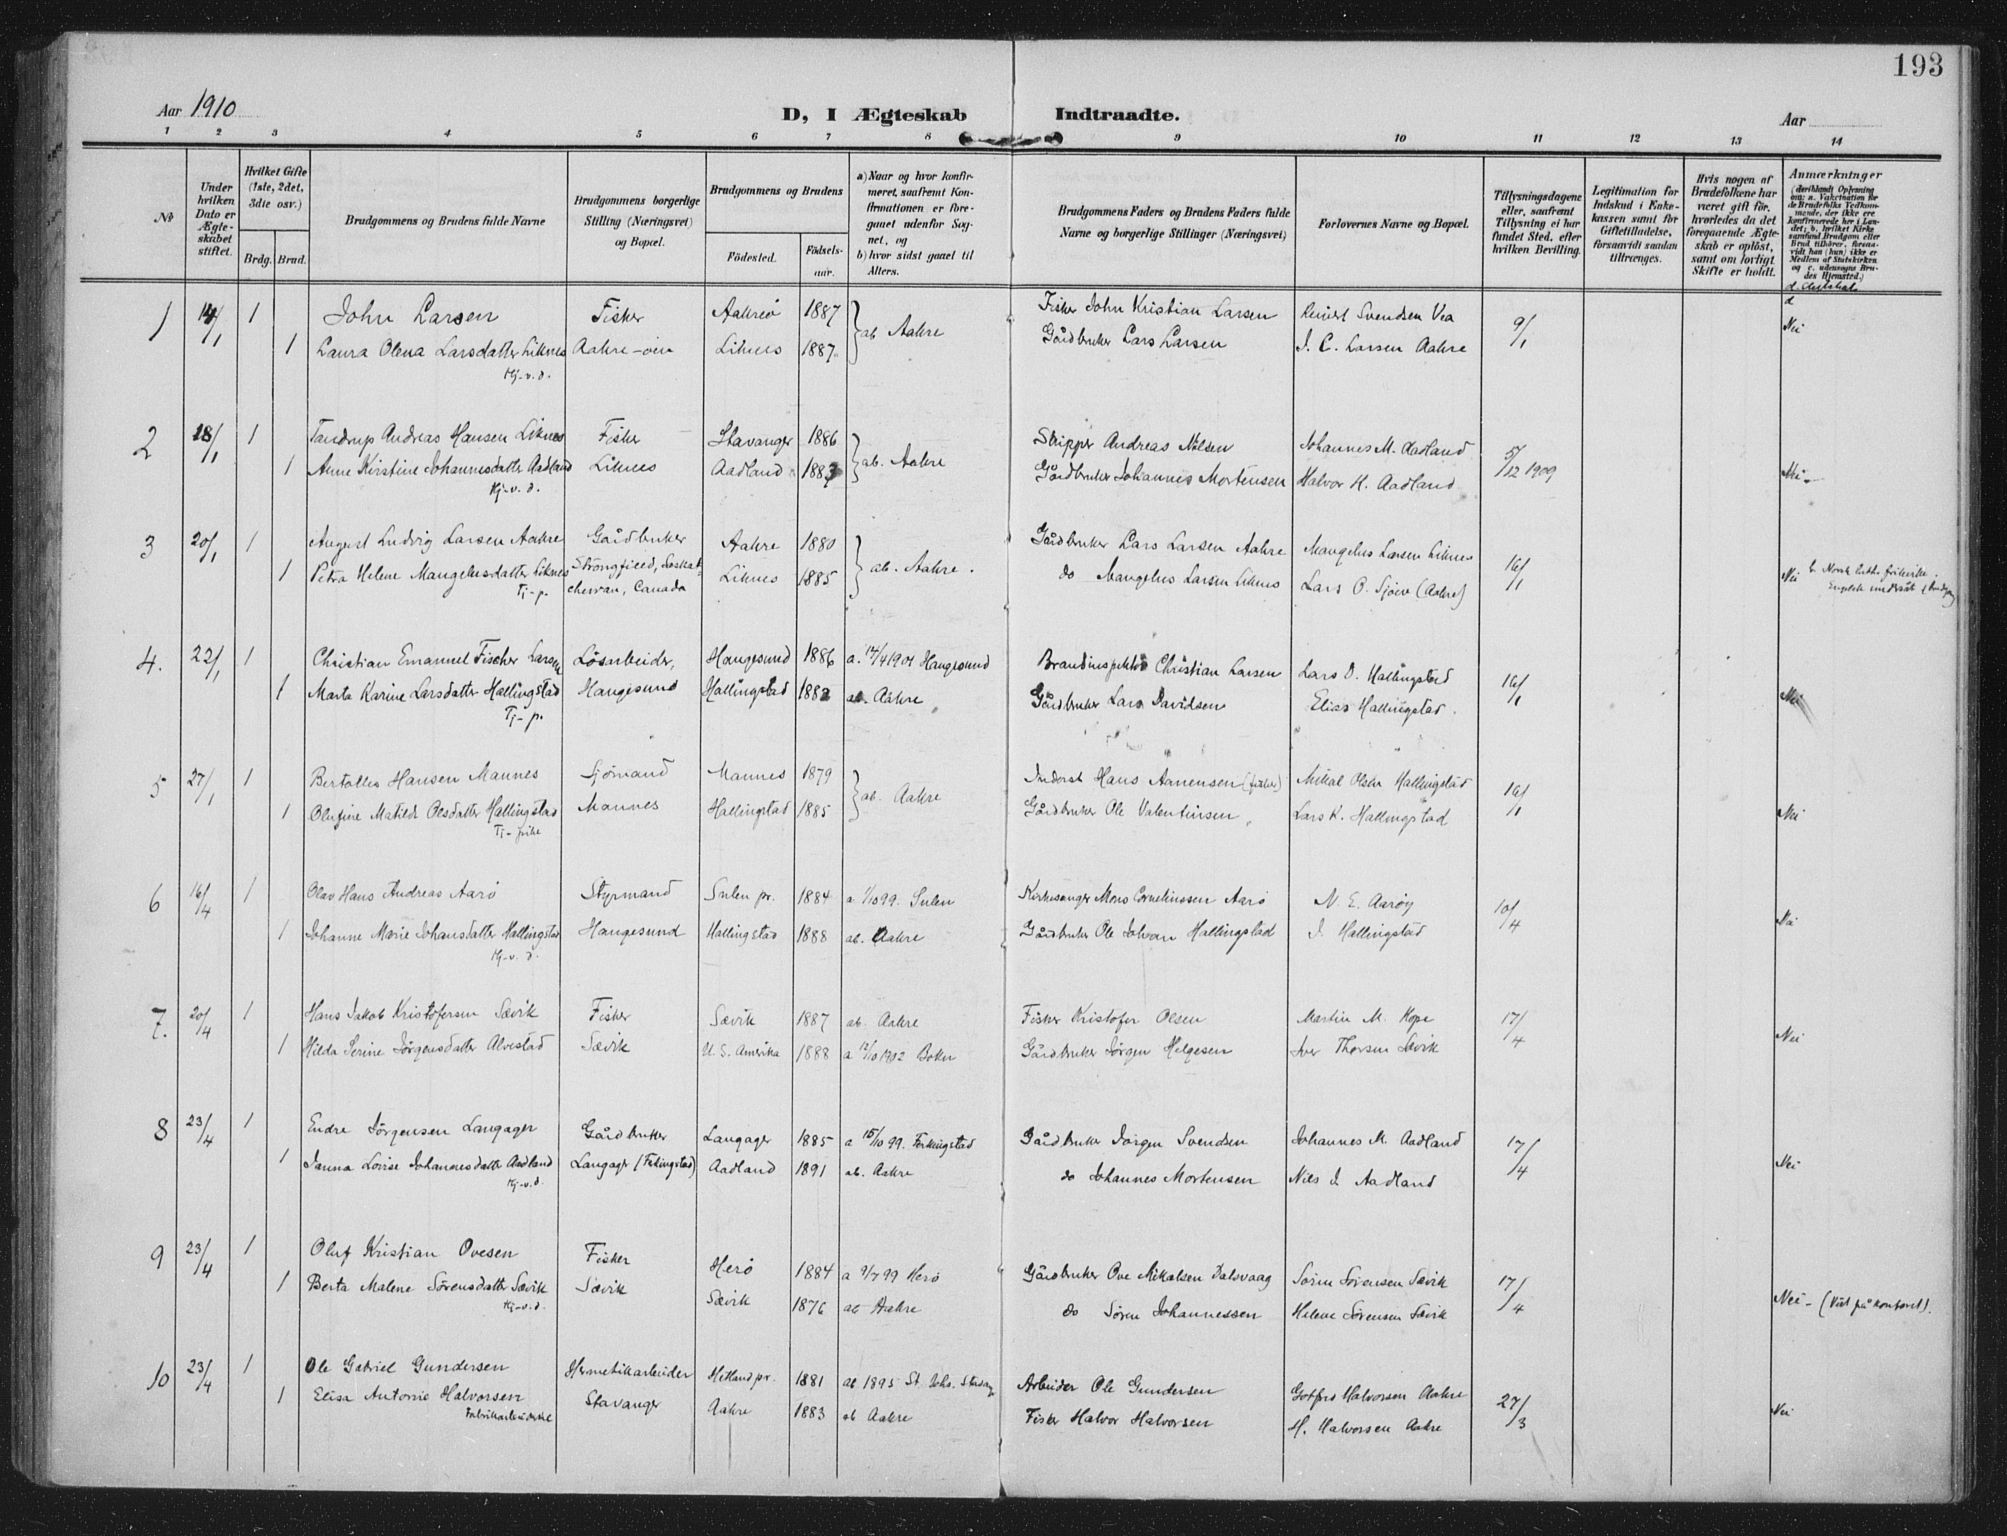 193
Aar 1910
D, I Ægteskab Indtraadte.
Aar
1 2 3 4 5 6 7 8 9 10 11 12 13 14
No
Under hvilken Dato er Ægteskabet stiftet.
Hvilket Gifte (1ste, 2det, 3die osv.)
Brdg. Brud.
Brudgommens og Brudens fulde Navne
Brudgommens borgerlige Stilling (Næringsvei) og Bopæl.
Brudgommens og Brudens
Födested. Födselsaar.
a) Naar og hvor konfirmeret, saafremt Konfirmationen er foregaaet udenfor Sognet, og
b) hvor sidst gaaet til Alters.
Brudgommens Faders og Brudens Faders fulde Navne og borgerlige Stillinger (Næringsvei)
Forlovernes Navne og Bopæl.
Tillysningsdagene eller, saafremt Tillysning ei har fundet Sted, efter hvilken Bevilling.
Legitimation for Indskud i Enkekassen samt for Giftetilladelse, forsaavidt saadan tiltrænges.
Hvis nogen af Brudefolkene har været gift för, hvorledes da det foregaaende Ægteskab er oplöst, samt om lovligt Skifte er holdt.
Anmærkninger
(deriblandt Oplysning om: a. Vakcination for de Brudefolks Vedkommende, der ikke ere konfirmerede her i Landet; b. hvilket Kirkesamfund Brudgom eller Brud tilhörer, forsaavidt han (hun) ikke er Medlem af Statskirken og c. udensogns Brudes Hjemsted.)
1 14/1 1 John Larsen Fisker Aakreö 1887 ab Aakre Fisker John Kristian Larsen Reinert Svendsen Vea 9/1 Nei
1 Laura Olena Larsdatter Liknes Aakre-öen Liknes 1887 Gårdbruker Lars Larsen J. C. Larsen Aakre
Hj-v.d.
2 18/1 1 Tandrup Andreas Hansen Liknes Fisker Stavanger 1886 ab. Aakre Skipper Andreas Nilsen Johannes M. Aadland 5/12 1909 Nei
1 Anne Kirstine Johannesdatter Aadland Liknes Aadland 1883 Gårdbruker Johannes Mortensen Halvor H. Aadland
Hj-v.d.
3 20/1 1 August Ludvig Larsen Aakre Gårdbruker Aakre 1880 ab. Aakre. Gårdbruker Lars Larsen Aakre Mangelus Larsen Liknes 16/1 Nei b. Norsk luth. frikirke.
1 Petra Helene Mangelusdatter Liknes Strongfield, Saskatchewan, Canada Liknes 1885 do Mangelus Larsen Liknes Lars O. Sjöen (Aakre)
Tj-p.
4. 22/1 1 Christian Emanuel Fischer Larsen Lösarbeider, Haugesund 1886 a. 14/4 1901 Haugesund Brandinspektör Christian Larsen Lars D. Hallingstad 16/1 Nei
1 Marta Karine Larsdatter Hallingstad Haugesund Hallingstad 1882 ab. Aakre Gårdbruker Lars Davidsen Elias Hallingstad.
Tj-p.
5 27/1 1 Bertolles Hansen Mannes Sjömand Mannes 1879 ab. Aakre Inderst Hans Aanensen (fisker) Mikal Olsen Hallingstad 16/1 Nei
1 Olufine Matilde Olsdatter Hallingstad Mannes Hallingstad 1885 Gårdbruker Ole Valentinsen Lars K. Hallingstad
Tj-pike
6 16/4 1 Olav Hans Andreas Aarö Styrmand Sulen pr. 1884 a 1/10 99. Sulen Kirkesanger Mons Corneliussen Aarö N. E. Aaröy 10/4 Nei
1 Johanne Marie Johansdatter Hallingstad Haugesund Hallingstad 1888 ab. Aakre Gårdbruker Ole Johan Hallingstad J. Hallingstad
Hj-v.d.
7. 20/4 1 Hans Jakob Kristofersen Sævik Fisker Sævik 1887 ab. Aakre Fisker Kristofer Olsen Martin M. Kope 17/4 Nei
1 Hilda Serine Jörgensdatter Alvestad Sævik U. S. Amerika 1888 a 12/10 1902 Bokn Gårdbruker Jörgen Helgesen Iver Thorsen Sævik
8 23/4 1 Endre Jörgensen Langager Gårdbruker Langager 1885 a 15/10 99. Ferkingstad Gårdbruker Jörgen Svendsen Johannes M. Aadland 17/4 Nei
1 Janna Lovise Johannesdatter Aadland Langager Aadland 1891 ab. Aakre do Johannes Mortensen Nils J. Aadland
Hj-v.d.
9 23/4 1 Oluf Kristian Ovesen Fisker Herö 1884 a 9/7 99 Herö Gårdbruker Ove Mikalsen Dalsvaag Sören Sörensen Sævik 17/4
1 Berta Malene Sörensdatter Sævik Sævik Sævik 1876 ab Aakre do Sören Johannessen Helene Sörensen Sævik Nei - (Viet på kontoret).
Hj-v.d.
10 23/4 1 Ole Gabriel Gundersen Hermetikarbeider Hetland pr. 1881 ab 1895 St. Johs. Stavanger Arbeider Ole Gundersen Gotfred Halvorsen Aakre 27/3 Nei
1 Elisa Antonie Halvorsen Stavanger Aakre 1883 ab Aakre Fisker Halvor Halvorsen H. Halvorsen Aakre
Fabrikarbeiderske